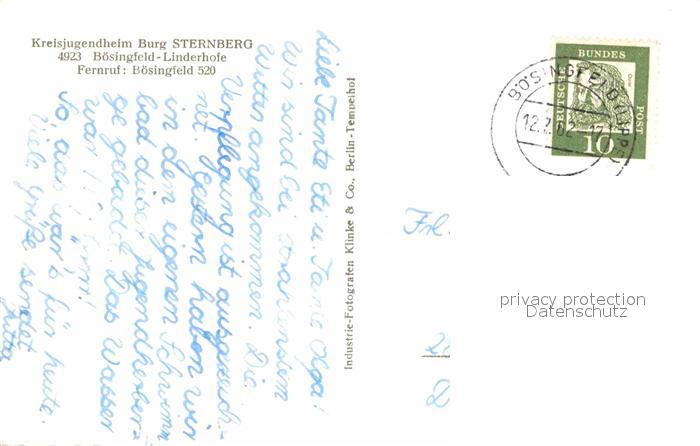 Kreisjugendheim Burg STERNBERG
4923 Bösingfeld-Linderhofe
Fernruf: Bösingfeld 520
Liebe Tante Eti u. Tante Olga!
Wir sind bei
Wetter angekommen. Die
Verpflegung ist ausgezeich-
net. Gestern haben wir
in den eigenen Schwimm
bad dieser Jugendherber-
ge gebadet. Das Wasser
war
So, das wär's für heute.
Viele Grüße sendet
Jutta
Industrie-Fotografen Klinke & Co., Berlin-Tempelhof
BÖSINGFELD (LIPPE)
DEUTSCHE
BUNDES
POST
10
Frl.
privacy protection
Datenschutz